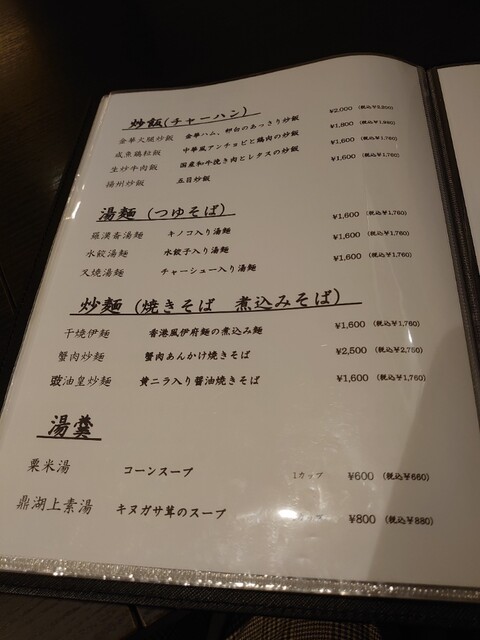 炒飯(チャーハン)
金華火腿炒飯 金華ハム、卵白のあっさり炒飯 ¥2,000 (税込¥2,200)
咸魚鶏粒飯 中華風アンチョビと鶏肉の炒飯 ¥1,800 (税込¥1,980)
生炒牛肉飯 国産和牛挽き肉とレタスの炒飯 ¥1,600 (税込¥1,760)
揚州炒飯 五目炒飯 ¥1,600 (税込¥1,760)
湯麺 (つゆそば)
羅漢斎湯麺 キノコ入り湯麺 ¥1,600 (税込¥1,760)
水餃湯麺 水餃子入り湯麺 ¥1,600 (税込¥1,760)
叉焼湯麺 チャーシュー入り湯麺 ¥1,600 (税込¥1,760)
炒麺 (焼きそば 煮込みそば)
干焼伊麺 香港風伊府麺の煮込み麺 ¥1,600 (税込¥1,760)
蟹肉炒麺 蟹肉あんかけ焼きそば ¥2,500 (税込¥2,750)
豉油皇炒麺 黄ニラ入り醤油焼きそば ¥1,600 (税込¥1,760)
湯羹
粟米湯 コーンスープ 1カップ ¥600 (税込¥660)
鼎湖上素湯 キヌガサ茸のスープ ¥800 (税込¥880)